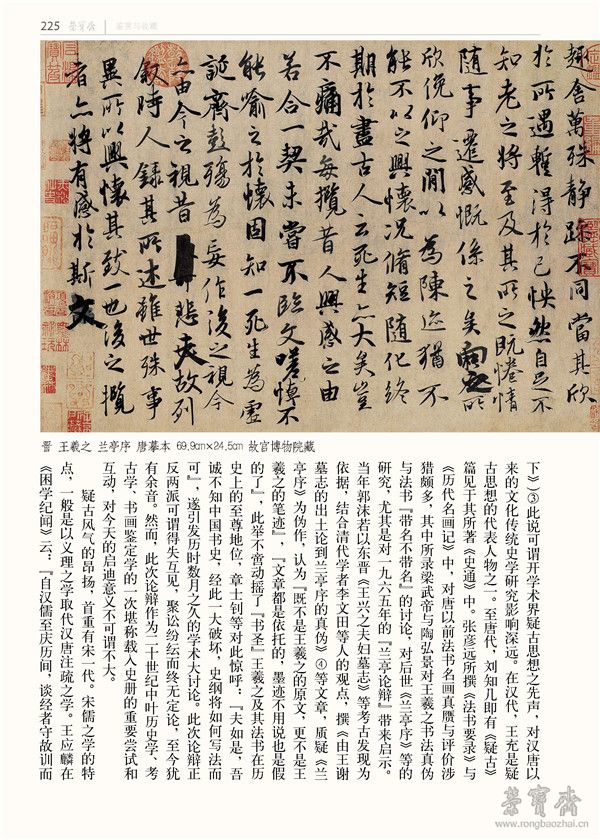 225 荣宝斋 鉴赏与收藏
趣舍萬殊静躁不同當其欣
於所遇蹔得於己怏然自足不
知老之將至及其所之既惓情
隨事遷感慨係之矣向之所
欣俛仰之閒以為陳迹猶不
能不以之興懷況脩短隨化終
期於盡古人云死生亦大矣豈
不痛哉每攬昔人興感之由
若合一契未嘗不臨文嗟悼不
能喻之於懷固知一死生為虛
誕齊彭殤為妄作後之視今
亦由今之視昔悲夫故列
敘時人録其所述雖世殊事
異所以興懷其致一也後之攬
者亦將有感於斯文
晋 王羲之 兰亭序 唐摹本 69.9cm×24.5cm 故宫博物院藏
下》③此说可谓开学术界疑古思想之先声，对汉唐以
来的文化传统史学研究影响深远。在汉代，王充是疑
古思想的代表人物之一。至唐代，刘知几即有《疑古》
篇见于其所著《史通》中。张彦远所撰《法书要录》与
《历代名画记》中，对唐以前法书名画真赝与评价涉
猎颇多，其中所录梁武帝与陶弘景对王羲之书法真伪
与法书『带名不带名』的讨论，对后世《兰亭序》等的
研究，尤其是对一九六五年的『兰亭论辩』带来启示。
当年郭沫若以东晋《王兴之夫妇墓志》等考古发现为
依据，结合清代学者李文田等人的观点，撰《由王谢
墓志的出土论到兰亭序的真伪》④等文章，质疑《兰
亭序》为伪作，认为『既不是王羲之的原文，更不是王
羲之的笔迹』，『文章都是依托的，墨迹不用说也是假
的了』，此举不啻动摇了『书圣』王羲之及其法书在历
史上的至尊地位，章士钊等对此惊呼：『夫如是，吾
诚不知中国书史，经此一大破坏，史纲将如何写法而
可』，遂引发历时数月之久的学术大讨论。此次论辩正
反两派可谓得失互见，聚讼纷纭而终无定论，至今犹
有余音。然而，此次论辩作为二十世纪中叶历史学、考
古学、书画鉴定学的一次堪称载入史册的重要尝试和
互动，对今天的启迪意义不可谓不大。
疑古风气的昂扬，首重有宋一代。宋儒之学的特
点，一般是以义理之学取代汉唐注疏之学。王应麟在
《困学纪闻》云：『自汉儒至庆历间，谈经者守故训而
荣宝斋
www.rongbaozhai.cn